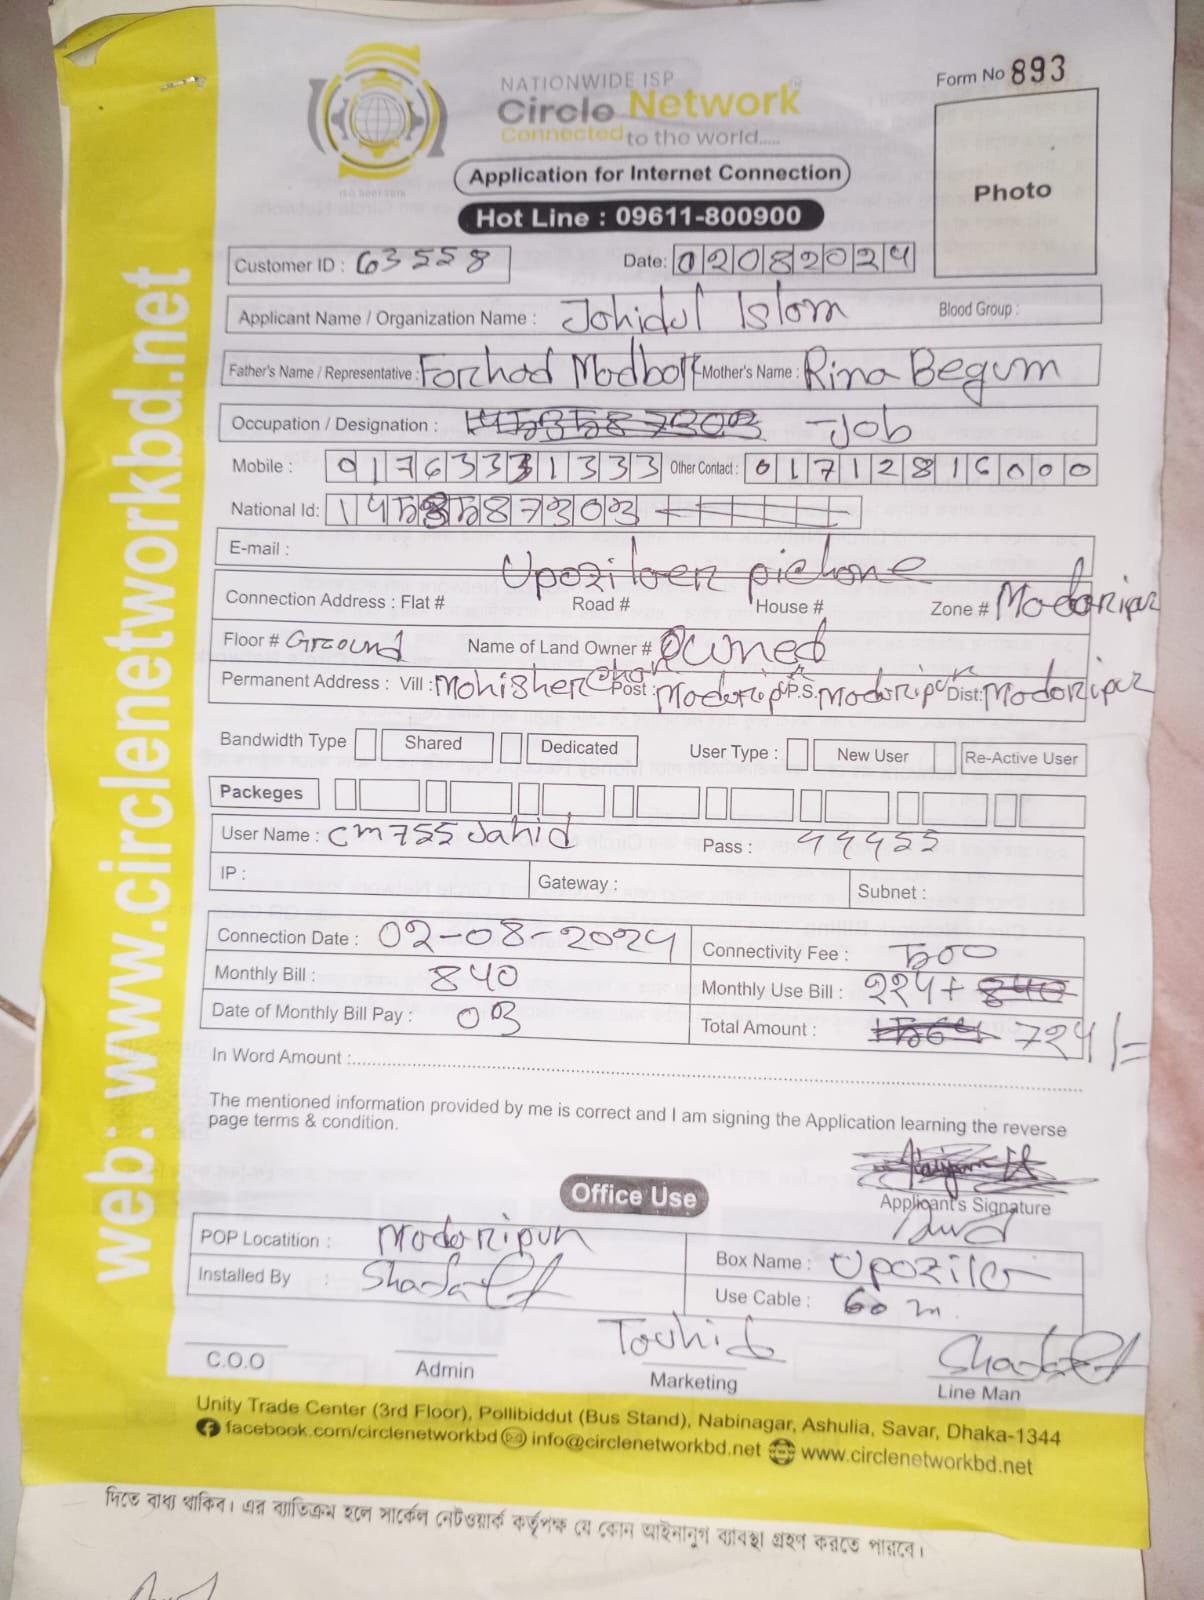 NATIONWIDE ISP
Circle Network
Connected to the world.....
ISO 9001:2015
Form No 893
Photo
Application for Internet Connection
Hot Line : 09611-800900
Customer ID : 63558
Date: 02082024
Applicant Name / Organization Name : Johidul Islom Blood Group :
Father's Name / Representative : Forhod Modbor Mother's Name : Rina Begum
Occupation / Designation : Job
Mobile : 01763331333 Other Contact : 01712816000
National Id:
E-mail :
Upozilaer pichone
Connection Address : Flat # Road # House # Zone # Modaripur
Floor # Ground Name of Land Owner # Owned
Permanent Address : Vill : Mohisher Char Post : Modaripur P.S. Modoripur Dist: Modoripur
Bandwidth Type Shared Dedicated User Type : New User Re-Active User
Packeges
User Name : cm755Jahid Pass : 44455
IP : Gateway : Subnet :
Connection Date : 02-08-2024 Connectivity Fee : 500
Monthly Bill : 840 Monthly Use Bill : 224+ 840
Date of Monthly Bill Pay : 03 Total Amount : 1564 724/=
In Word Amount :
The mentioned information provided by me is correct and I am signing the Application learning the reverse
page terms & condition.
Applicant's Signature
Office Use
POP Locatition : Modoripur Box Name : Upozila
Installed By : Use Cable : 60 m.
Touhid
C.O.O Admin Marketing Line Man
Unity Trade Center (3rd Floor), Pollibiddut (Bus Stand), Nabinagar, Ashulia, Savar, Dhaka-1344
facebook.com/circlenetworkbd info@circlenetworkbd.net www.circlenetworkbd.net
web: www.circlenetworkbd.net
দিতে বাধ্য থাকিব। এর ব্যতিক্রম হলে সার্কেল নেটওয়ার্ক কর্তৃপক্ষ যে কোন আইনানুগ ব্যাবস্থা গ্রহণ করতে পারবে।